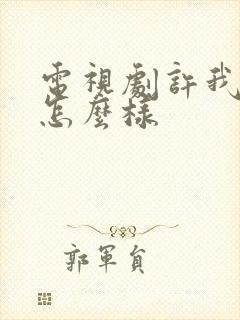 電視劇許我
怎麼樣
郭軍員